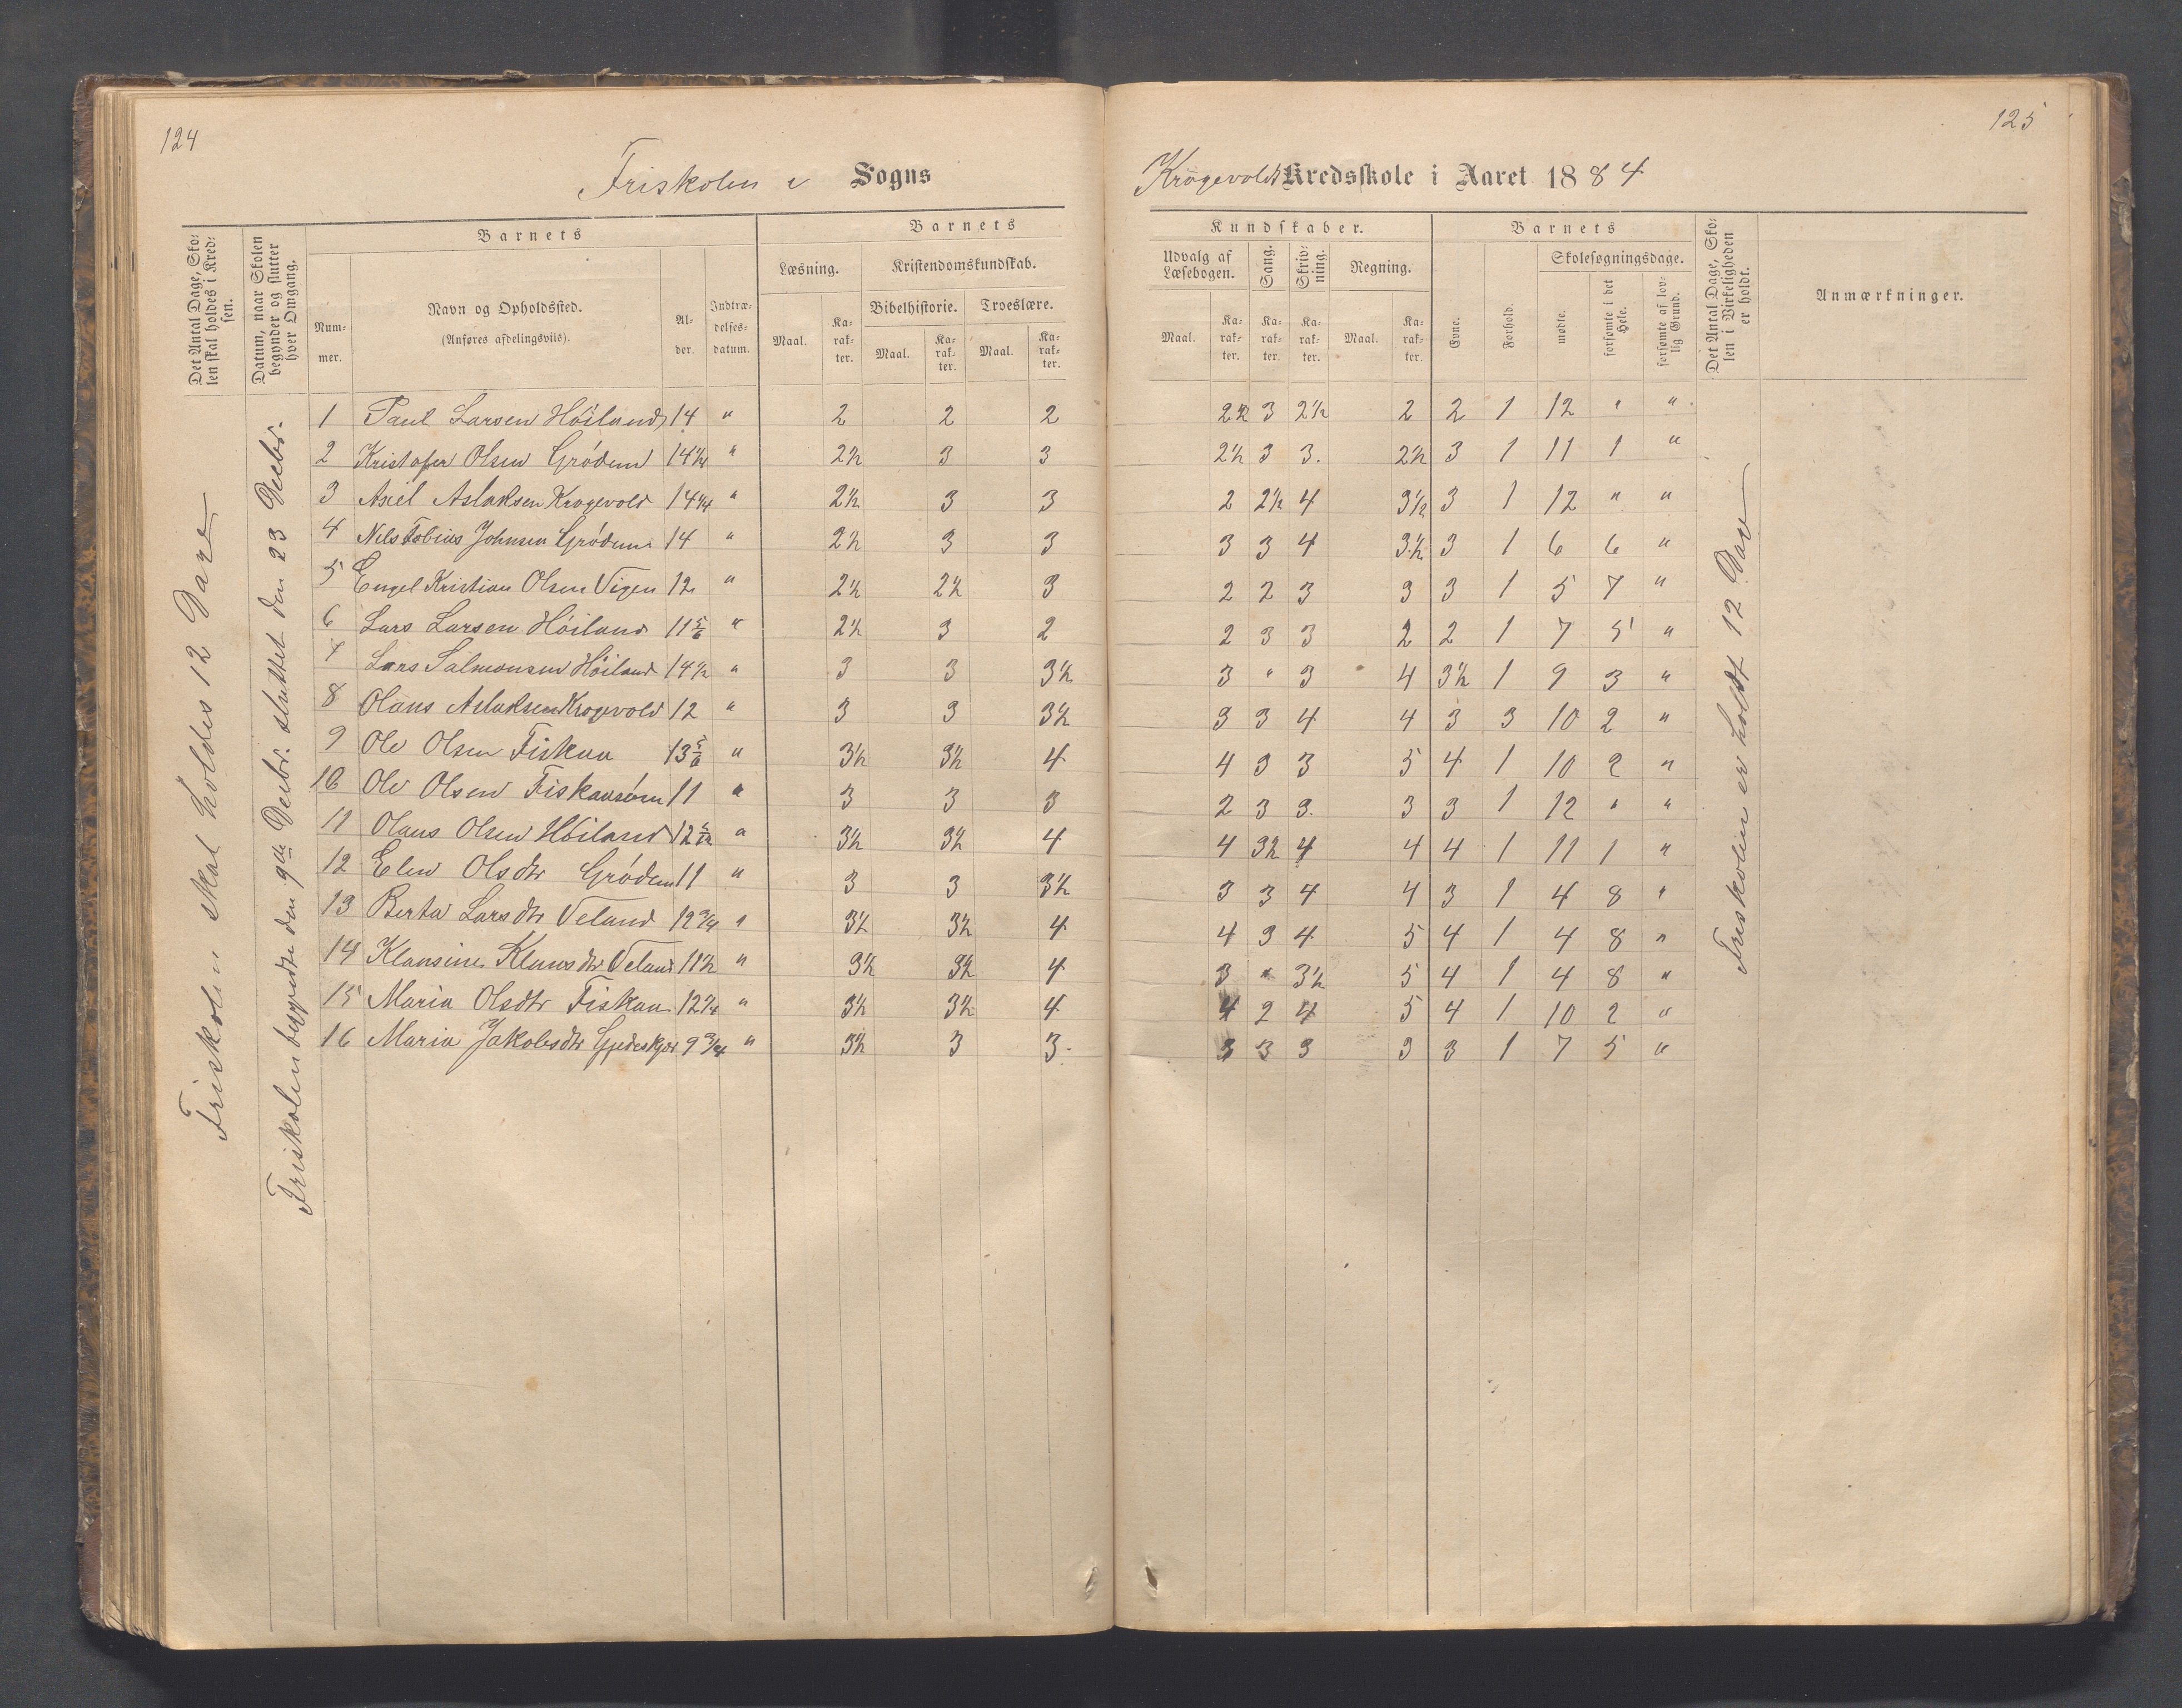 124
125
Friskolen i Sogns
Krogevolds Kredsskole i Aaret 1884
Det Antal Dage, Sko-
len skal holdes i Kred-
sen.
Datum, naar Skolen
begynder og slutter
hver Omgang.
Barnets
Num-
mer.
Navn og Opholdssted.
(Anføres afdelingsviis).
Al-
der.
Indtræ-
delses-
datum.
Barnets
Læsning.
Maal.
Ka-
rak-
ter.
Kristendomskundskab.
Bibelhistorie.
Maal.
Ka-
rak-
ter.
Troeslære.
Maal.
Ka-
rak-
ter.
Kundskaber.
Udvalg af
Læsebogen.
Maal.
Ka-
rak-
ter.
Sang.
Ka-
rak-
ter.
Skriv-
ning.
Ka-
rak-
ter.
Regning.
Maal.
Ka-
rak-
ter.
Barnets
Evne.
Forhold.
Skolesøgningsdage.
mødte.
forsømte i det
Hele.
forsømte af lov-
lig Grund.
Det Antal Dage, Sko-
len i Virkeligheden
er holdt.
Anmærkninger.
Friskolen skal holdes 12 Dage
Friskolen begyndte den 9de Decbr. sluttet den 23 Decbr.
1 Paul Larsen Höiland 14 " 2 2 2 2½ 3 2½ 2 2 1 12 " "
2 Kristofer Olsen Grödem 14¼ " 2½ 3 3 2½ 3 3. 2½ 3 1 11 1 "
3 Axel Aslaksen Krogevold 14¼ " 2½ 3 3 2 2½ 4 3½ 3 1 12 " "
4 Nils Tobias Johnsen Grödem 14 " 2½ 3 3 3 3 4 3½ 3 1 6 6 "
5 Engel Kristian Olsen Vigen 12 " 2½ 2½ 3 2 2 3 3 3 1 5 7 "
6 Lars Larsen Höiland 11 5/6 " 2½ 3 2 2 3 3 2 2 1 7 5 "
7 Lars Salmonsen Höiland 14½ " 3 3 3½ 3 " 3 4 3½ 1 9 3 "
8 Olaus Aslaksen Krogevold 12 " 3 3 3½ 3 3 4 4 3 3 10 2 "
9 Ole Olsen Fiskaa 13 5/6 " 3½ 3½ 4 4 3 3 5 4 1 10 2 "
10 Ole Olsen Fiskaa 11 " 3 3 3 2 3 3. 3 3 1 12 " "
11 Olaus Olsen Höiland 12 5/12 " 3½ 3½ 4 4 3½ 4 4 4 1 11 1 "
12 Elen Olsdtr Grödem 11 " 3 3 3½ 3 3 4 4 3 1 4 8 "
13 Berta Larsdtr Veland 12 3/4 " 3½ 3½ 4 4 3 4 5 4 1 4 8 "
14 Klausine Klausdtr Veland 11½ " 3½ 3½ 4 3 " 3½ 5 4 1 4 8 "
15 Maria Olsdtr Fiskaa 12¼ " 3½ 3½ 4 4 2 4 5 4 1 10 2 "
16 Maria Jakobsdtr 9 3/4 " 3½ 3 3 3 3 3 3 3 1 7 5 "
Friskolen er holdt 12 Dage